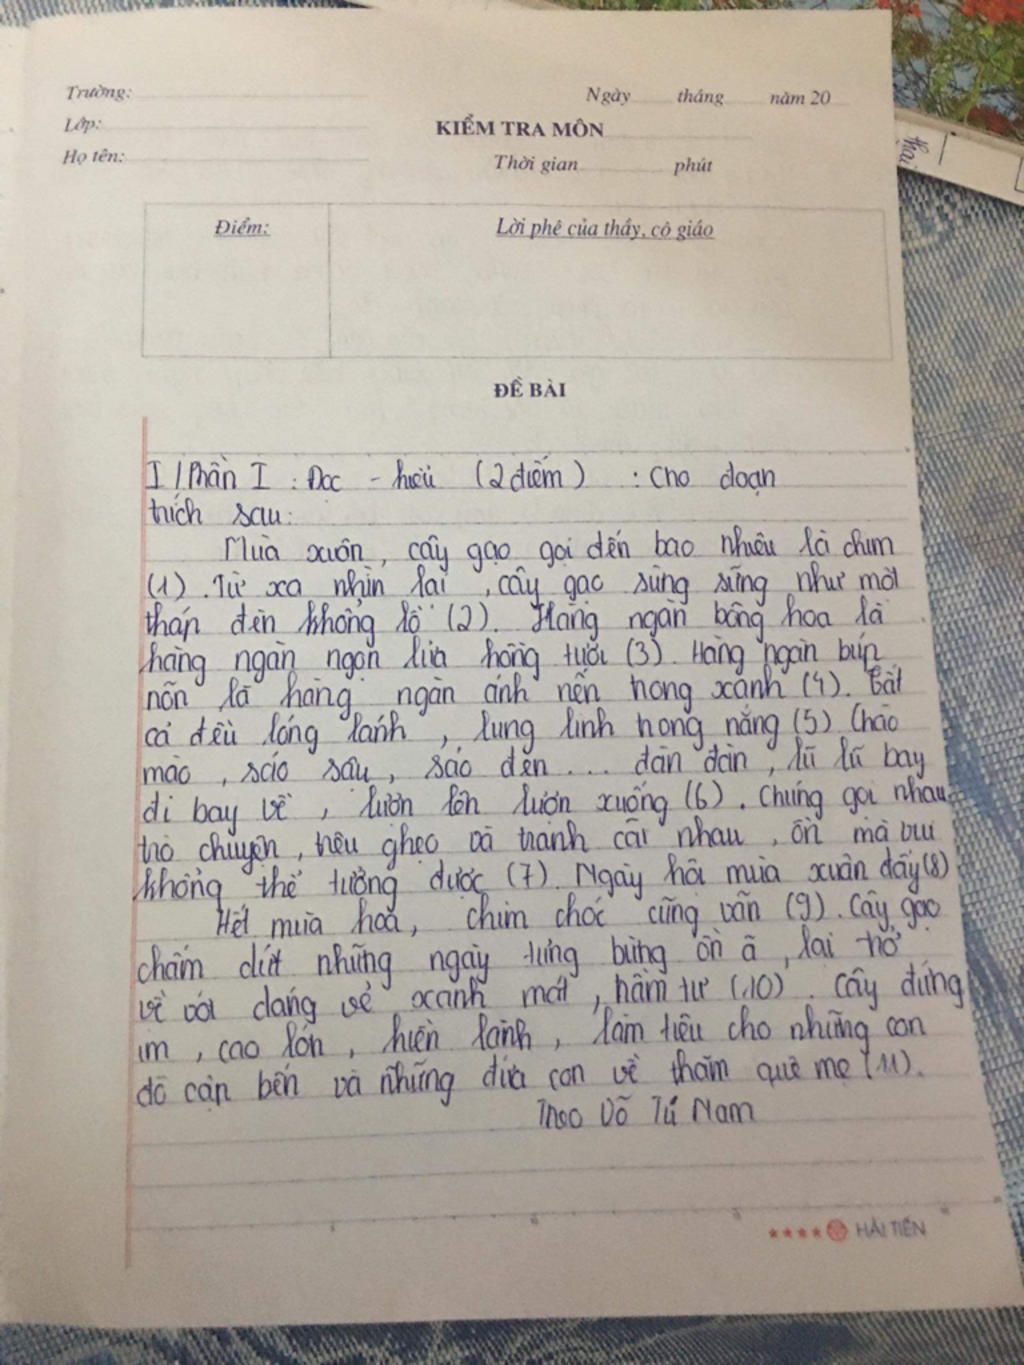 Trường:
Ngày tháng năm 20
Lớp:
KIỂM TRA MÔN
Họ tên:
Thời gian phút
Điểm:
Lời phê của thầy, cô giáo
ĐỀ BÀI
I / Phần I : Đọc - hiểu (2 điểm) : Cho đoạn
trích sau:
Mùa xuân, cây gạo gọi đến bao nhiêu là chim
(1). Từ xa nhìn lại, cây gạo sừng sững như một
tháp đèn khổng lồ (2). Hàng ngàn bông hoa là
hàng ngàn ngọn lửa hồng tươi (3). Hàng ngàn búp
nõn là hàng ngàn ánh nến trong xanh (4). Tất
cả đều lóng lánh, lung linh trong nắng (5) Chào
mào, sáo sậu, sáo đen... đàn đàn, lũ lũ bay
đi bay về, lượn lên lượn xuống (6). Chúng gọi nhau
trò chuyện, trêu ghẹo và tranh cãi nhau, ồn mà vui
không thể tưởng được (7). Ngày hội mùa xuân đấy (8)
Hết mùa hoa, chim chóc cũng vãn (9). Cây gạo
chấm dứt những ngày tưng bừng ồn ã, lại trở
về với dáng vẻ xanh mát, trầm tư (10). Cây đứng
im, cao lớn, hiền lành, làm tiêu cho những con
đò cập bến và những đứa con về thăm quê mẹ (11).
Theo Vũ Tú Nam
HẢI TIẾN